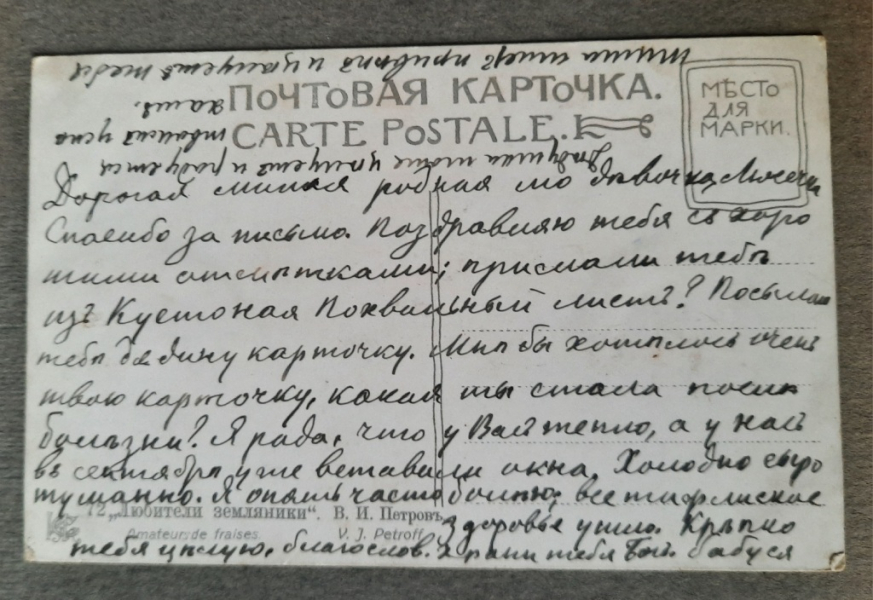 Тиша шлетъ привѣтъ и цѣлуетъ тебя
Дѣдушка тоже цѣлуетъ и радуется
твоимъ успѣ
хамъ.
ПОЧТОВАЯ КАРТОЧКА.
CARTE POSTALE.
МѢСТО
ДЛЯ
МАРКИ.
Дорогая милая родная мо дѣвочка Люсечка
Спасибо за письмо. Поздравляю тебя съ хоро
шими отмѣтками; прислали тебѣ
изъ Кустоная Похвальный листъ? Посылаю
тебѣ дядину карточку. Мнѣ бы хотѣлось очень
твою карточку, какая ты стала послѣ
болѣзни? Я рада, что у Васъ тепло, а у насъ
въ сентябрѣ уже вставили окна. Холодно сыро
туманно. Я опять часто болѣю; все тифлиское
здоровье ушло. Крѣпко
тебя цѣлую, благослов. храни тебя Богъ. бабуся
72 „Любители земляники“. В. И. Петровъ
Amateurs de fraises. V. J. Petroff